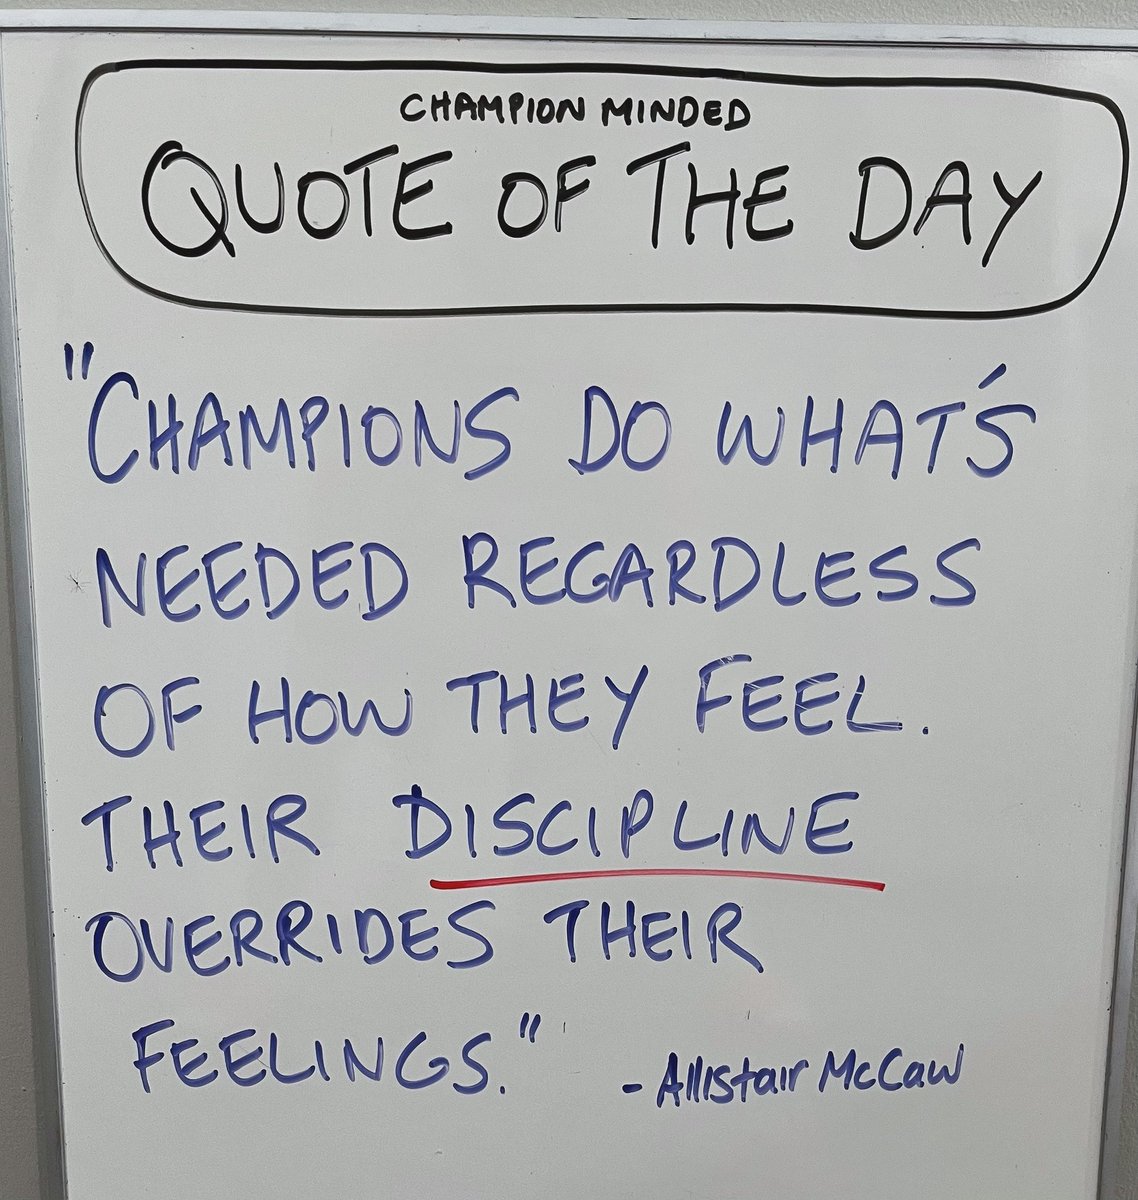 CHAMPION MINDED
QUOTE OF THE DAY
"CHAMPIONS DO WHAT'S
NEEDED REGARDLESS
OF HOW THEY FEEL.
THEIR DISCIPLINE
OVERRIDES THEIR
FEELINGS."
- Allistair McCaw